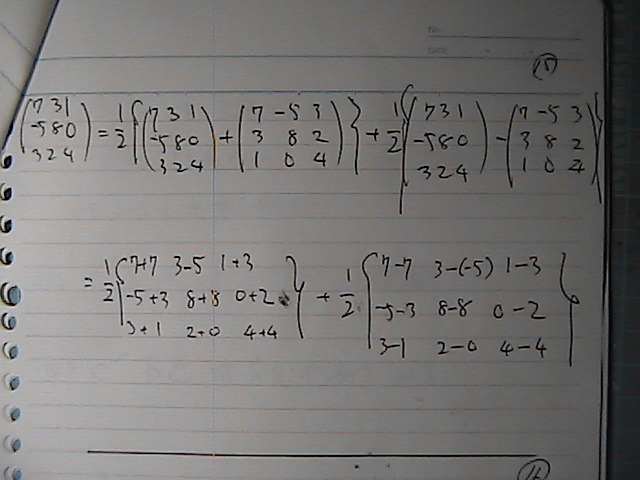 NO.
DATE
(15)
(7 3 1
-5 8 0
3 2 4) = 1/2 {(7 3 1
-5 8 0
3 2 4) + (7 -5 3
3 8 2
1 0 4)} + 1/2 {(7 3 1
-5 8 0
3 2 4) - (7 -5 3
3 8 2
1 0 4)}
= 1/2 {7+7 3-5 1+3
-5+3 8+8 0+2
3+1 2+0 4+4} + 1/2 {7-7 3-(-5) 1-3
-5-3 8-8 0-2
3-1 2-0 4-4}